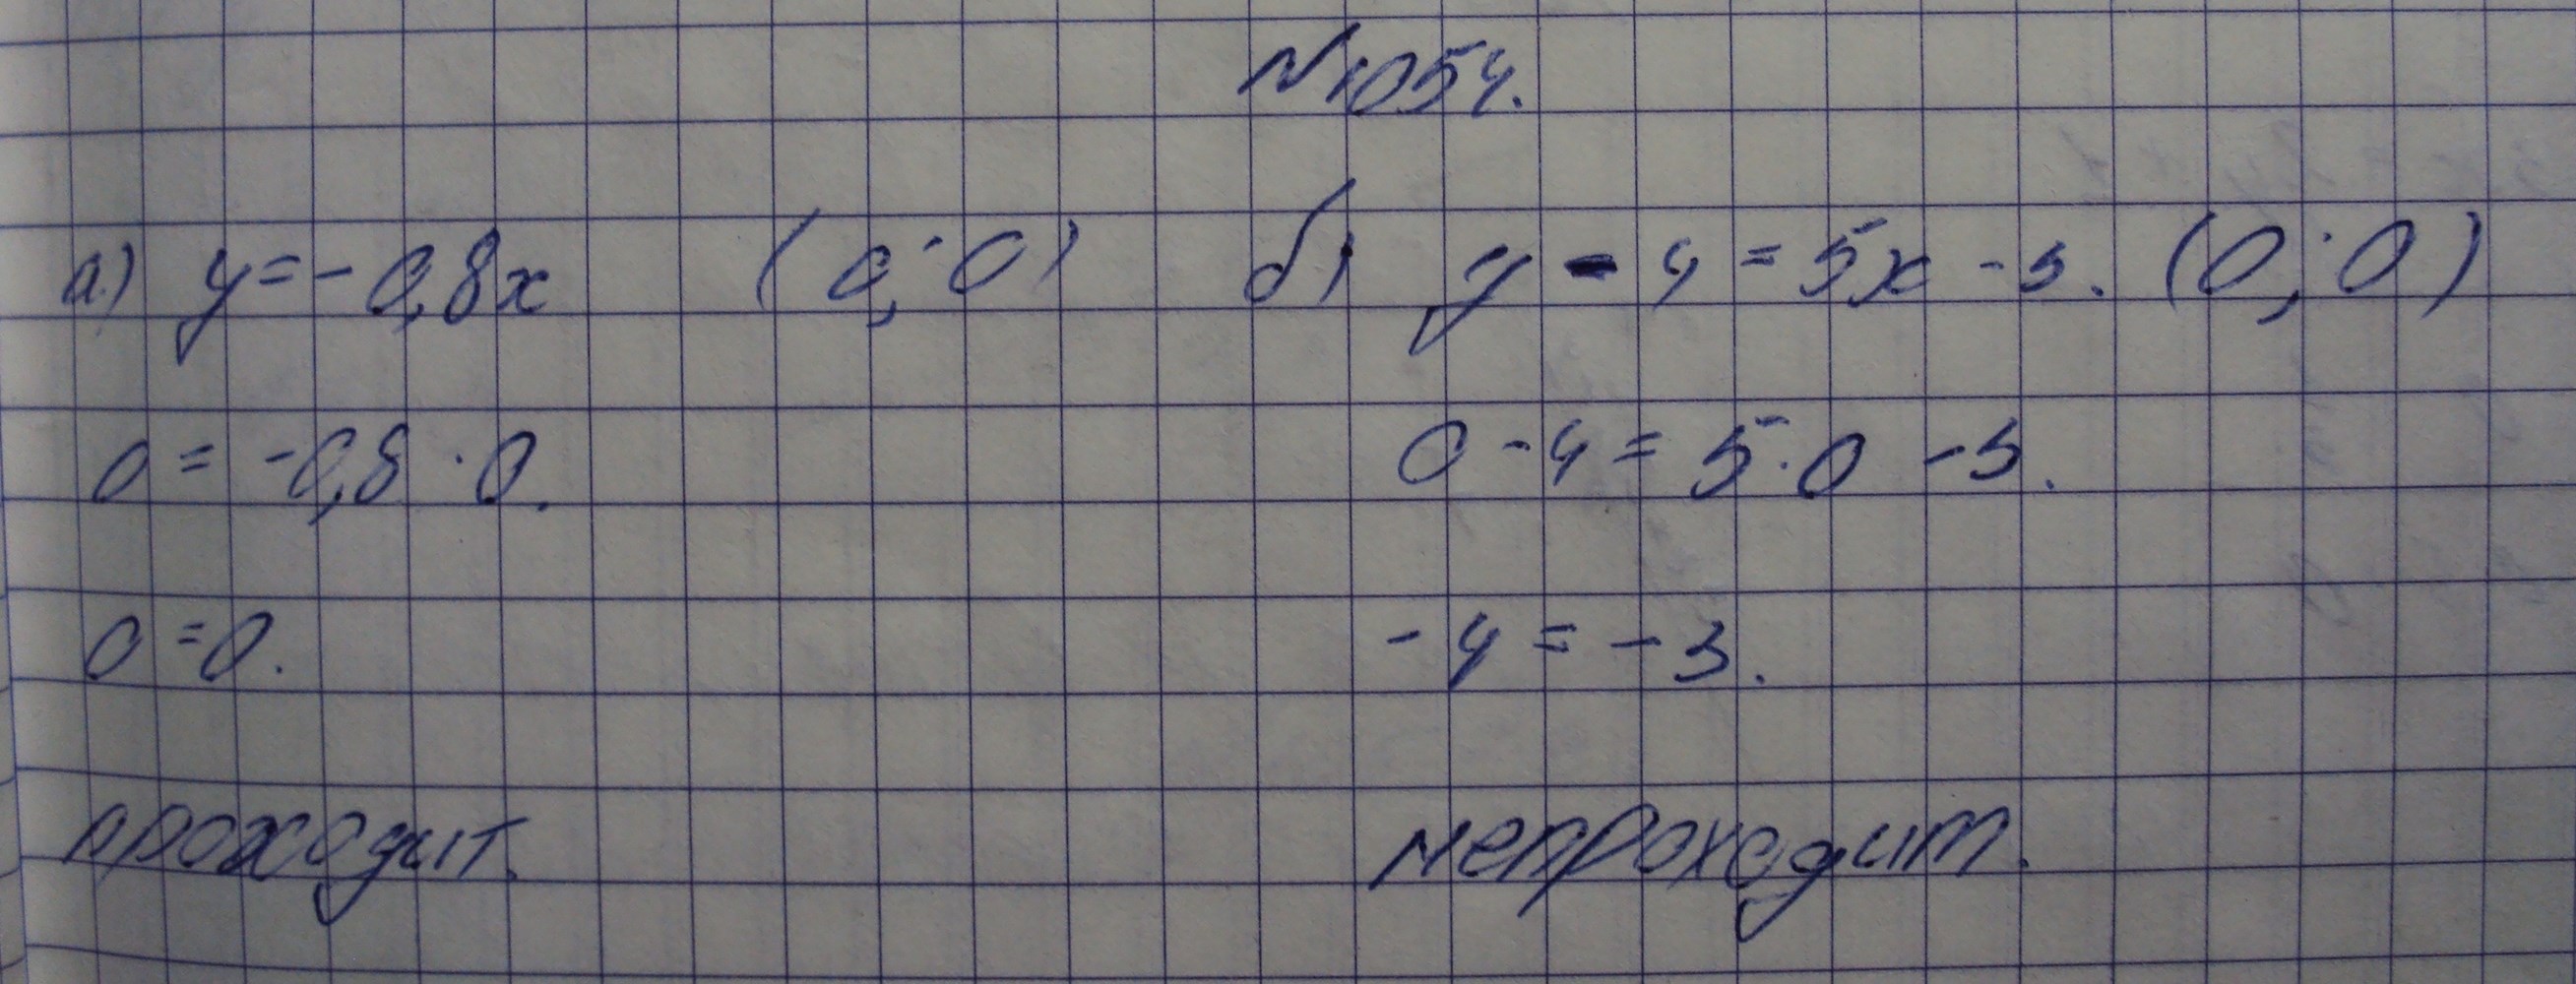 №1054.
а) y = -0,8x (0; 0) б) y - 4 = 5x - 3. (0; 0)
0 = -0,8 · 0. 0 - 4 = 5 · 0 - 3.
0 = 0. -4 = -3.
проходит. непроходит.